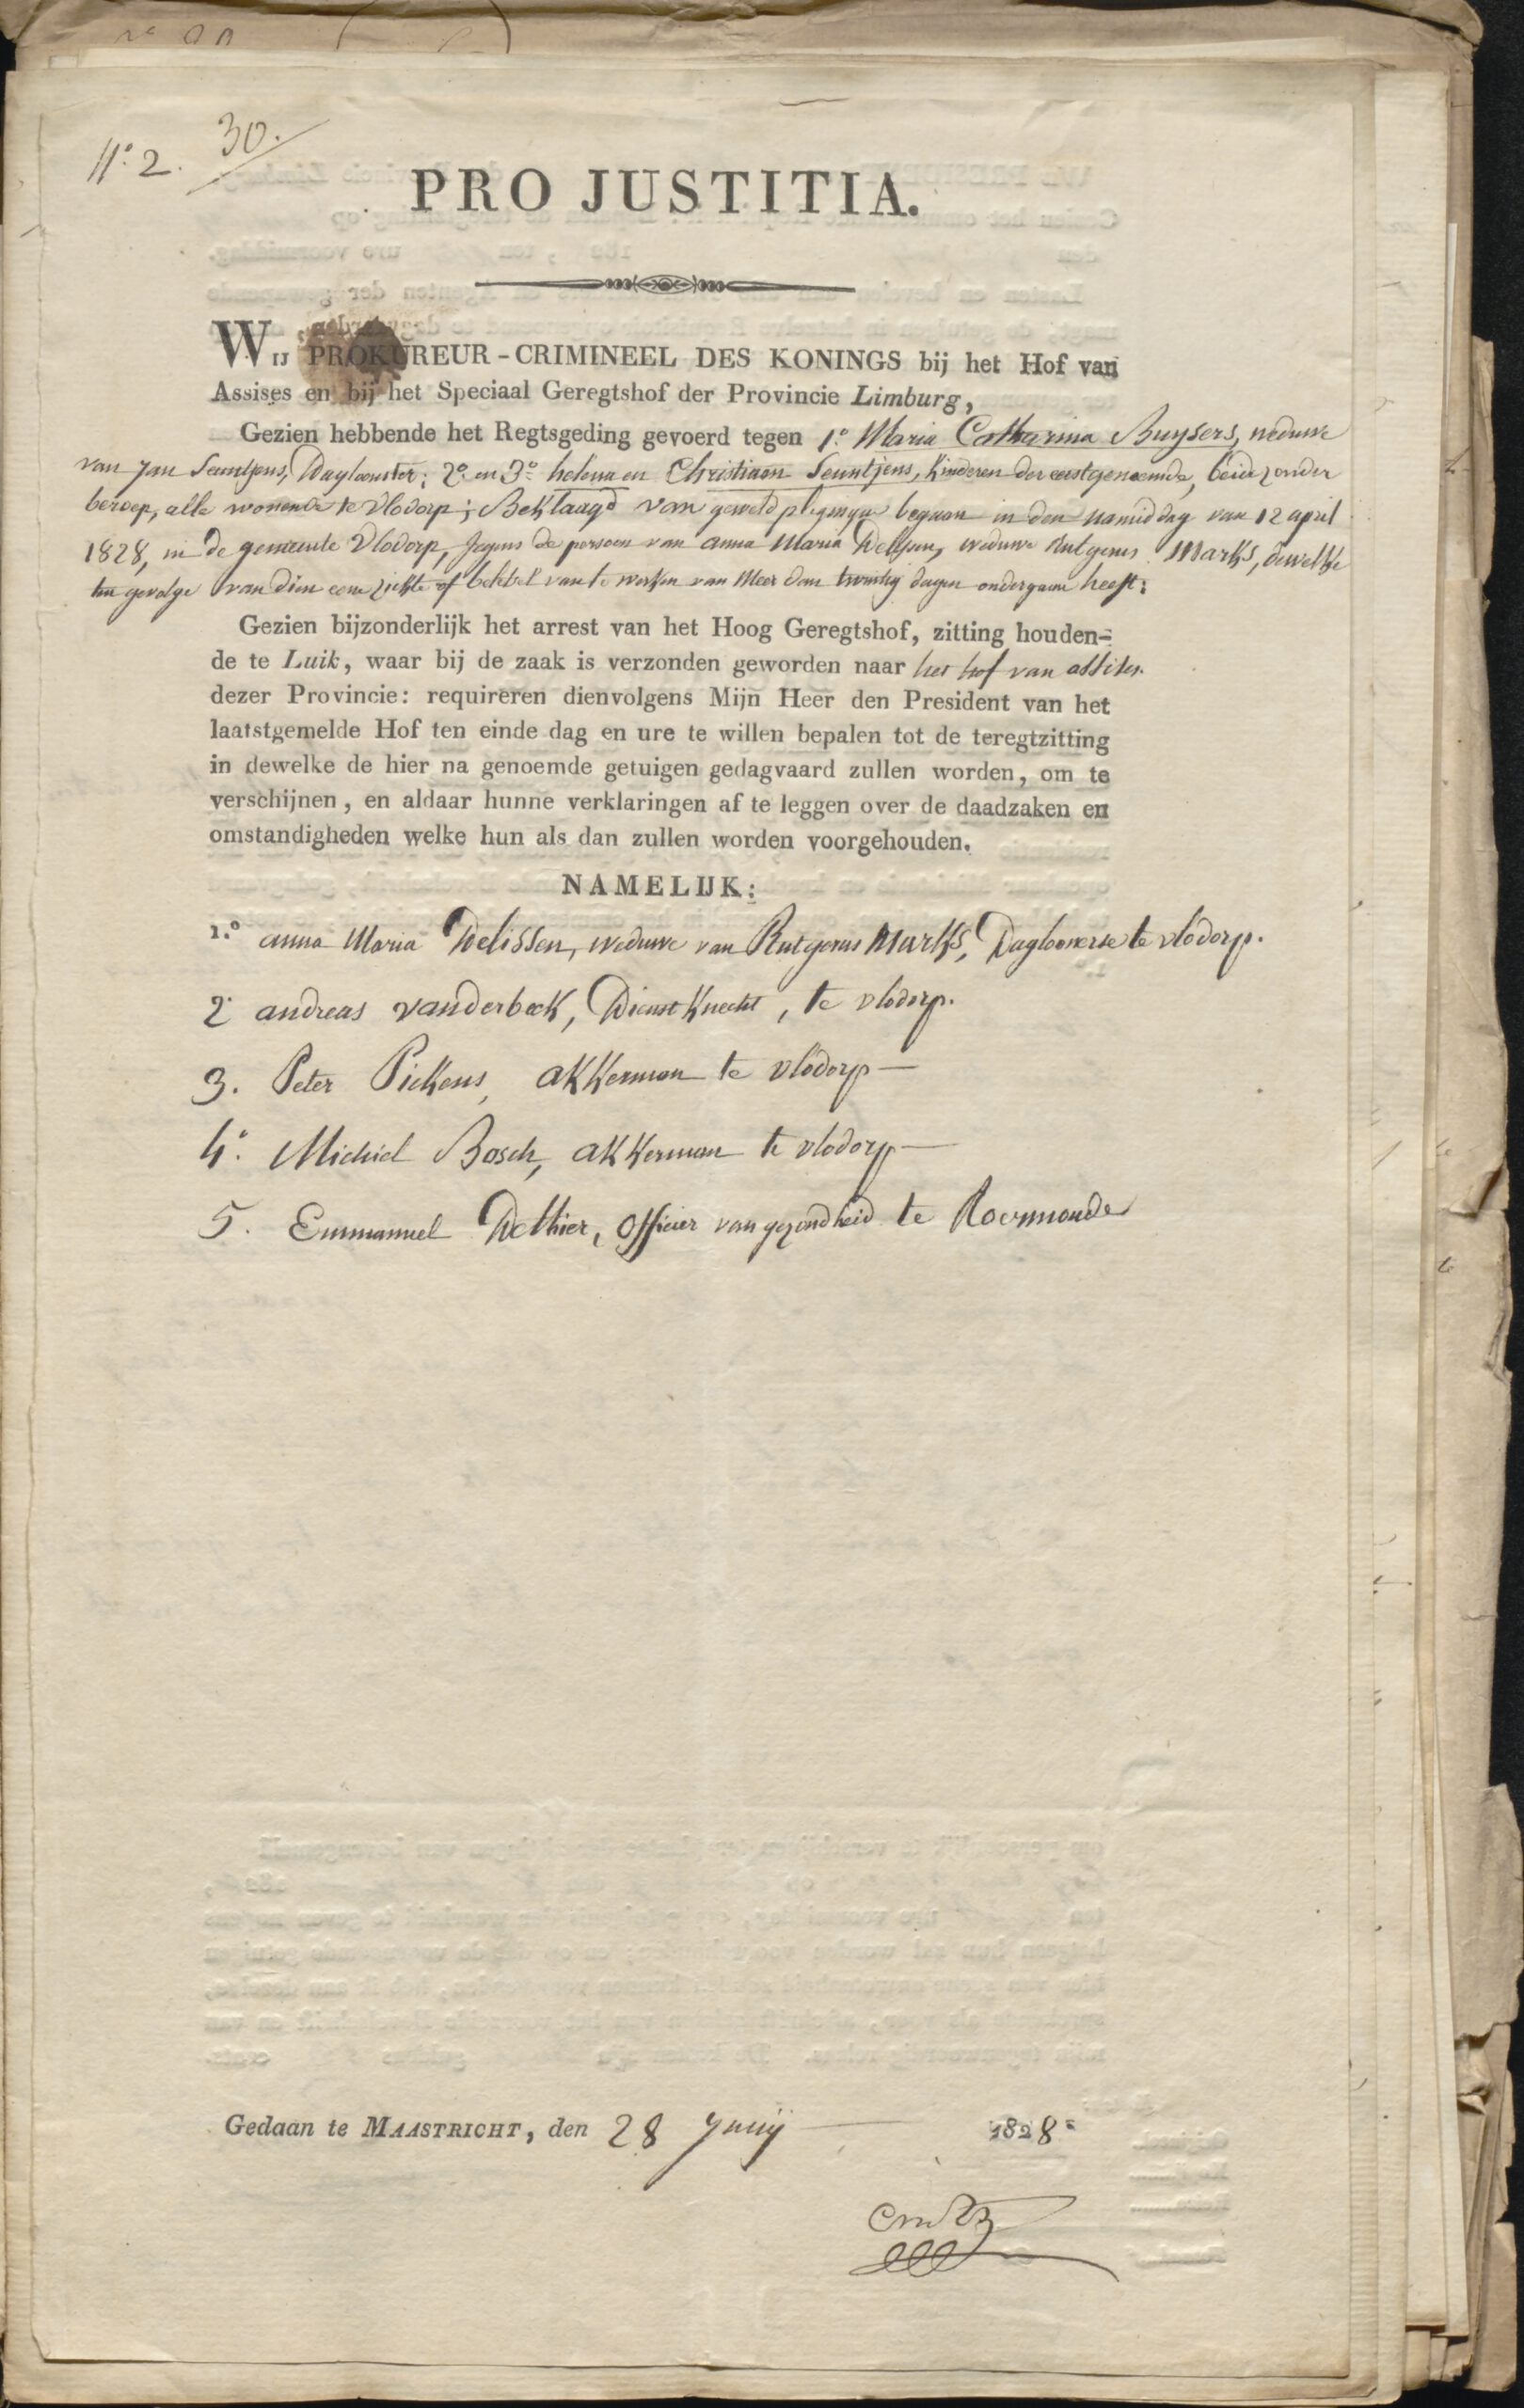 N.o 2. 30.
PRO JUSTITIA.
WIJ PROKUREUR-CRIMINEEL DES KONINGS bij het Hof van
Assises en bij het Speciaal Geregtshof der Provincie Limburg,
Gezien hebbende het Regtsgeding gevoerd tegen 1.o Maria Catharina Buysers, weduwe
van Jan Seuntjens, Dagloonster; 2.o en 3.o helena en Christiaan Seuntjens, Kinderen der eerstgenoemde, beide zonder
beroep, alle wonende te Vlodorp; Beklaagd van geweldplegingen begaan in den namiddag van 12 april
1828, in de gemeente Vlodorp, Jegens de persoon van anna Maria Delissen, weduwe Rutgerus Marks, dewelke
ten gevolge van dien eene ziekte of beletsel van te werken van Meer dan twintig dagen ondergaan heeft;
Gezien bijzonderlijk het arrest van het Hoog Geregtshof, zitting houden-
de te Luik, waar bij de zaak is verzonden geworden naar het hof van assises
dezer Provincie: requireren dienvolgens Mijn Heer den President van het
laatstgemelde Hof ten einde dag en ure te willen bepalen tot de teregtzitting
in dewelke de hier na genoemde getuigen gedagvaard zullen worden, om te
verschijnen, en aldaar hunne verklaringen af te leggen over de daadzaken en
omstandigheden welke hun als dan zullen worden voorgehouden.
NAMELIJK:
1.o anna Maria Delissen, weduwe van Rutgerus Marks, Daglonerse te vlodorp.
2 andreas vanderbeek, Dienst Knecht, te vlodorp.
3. Peter Pickens, akkerman te vlodorp
4.o Michiel Bosch, akkerman te vlodorp
5. Emmanuel Dethier, officier van gezondheid te Roermonde
Gedaan te MAASTRICHT, den 28 Junij 1828